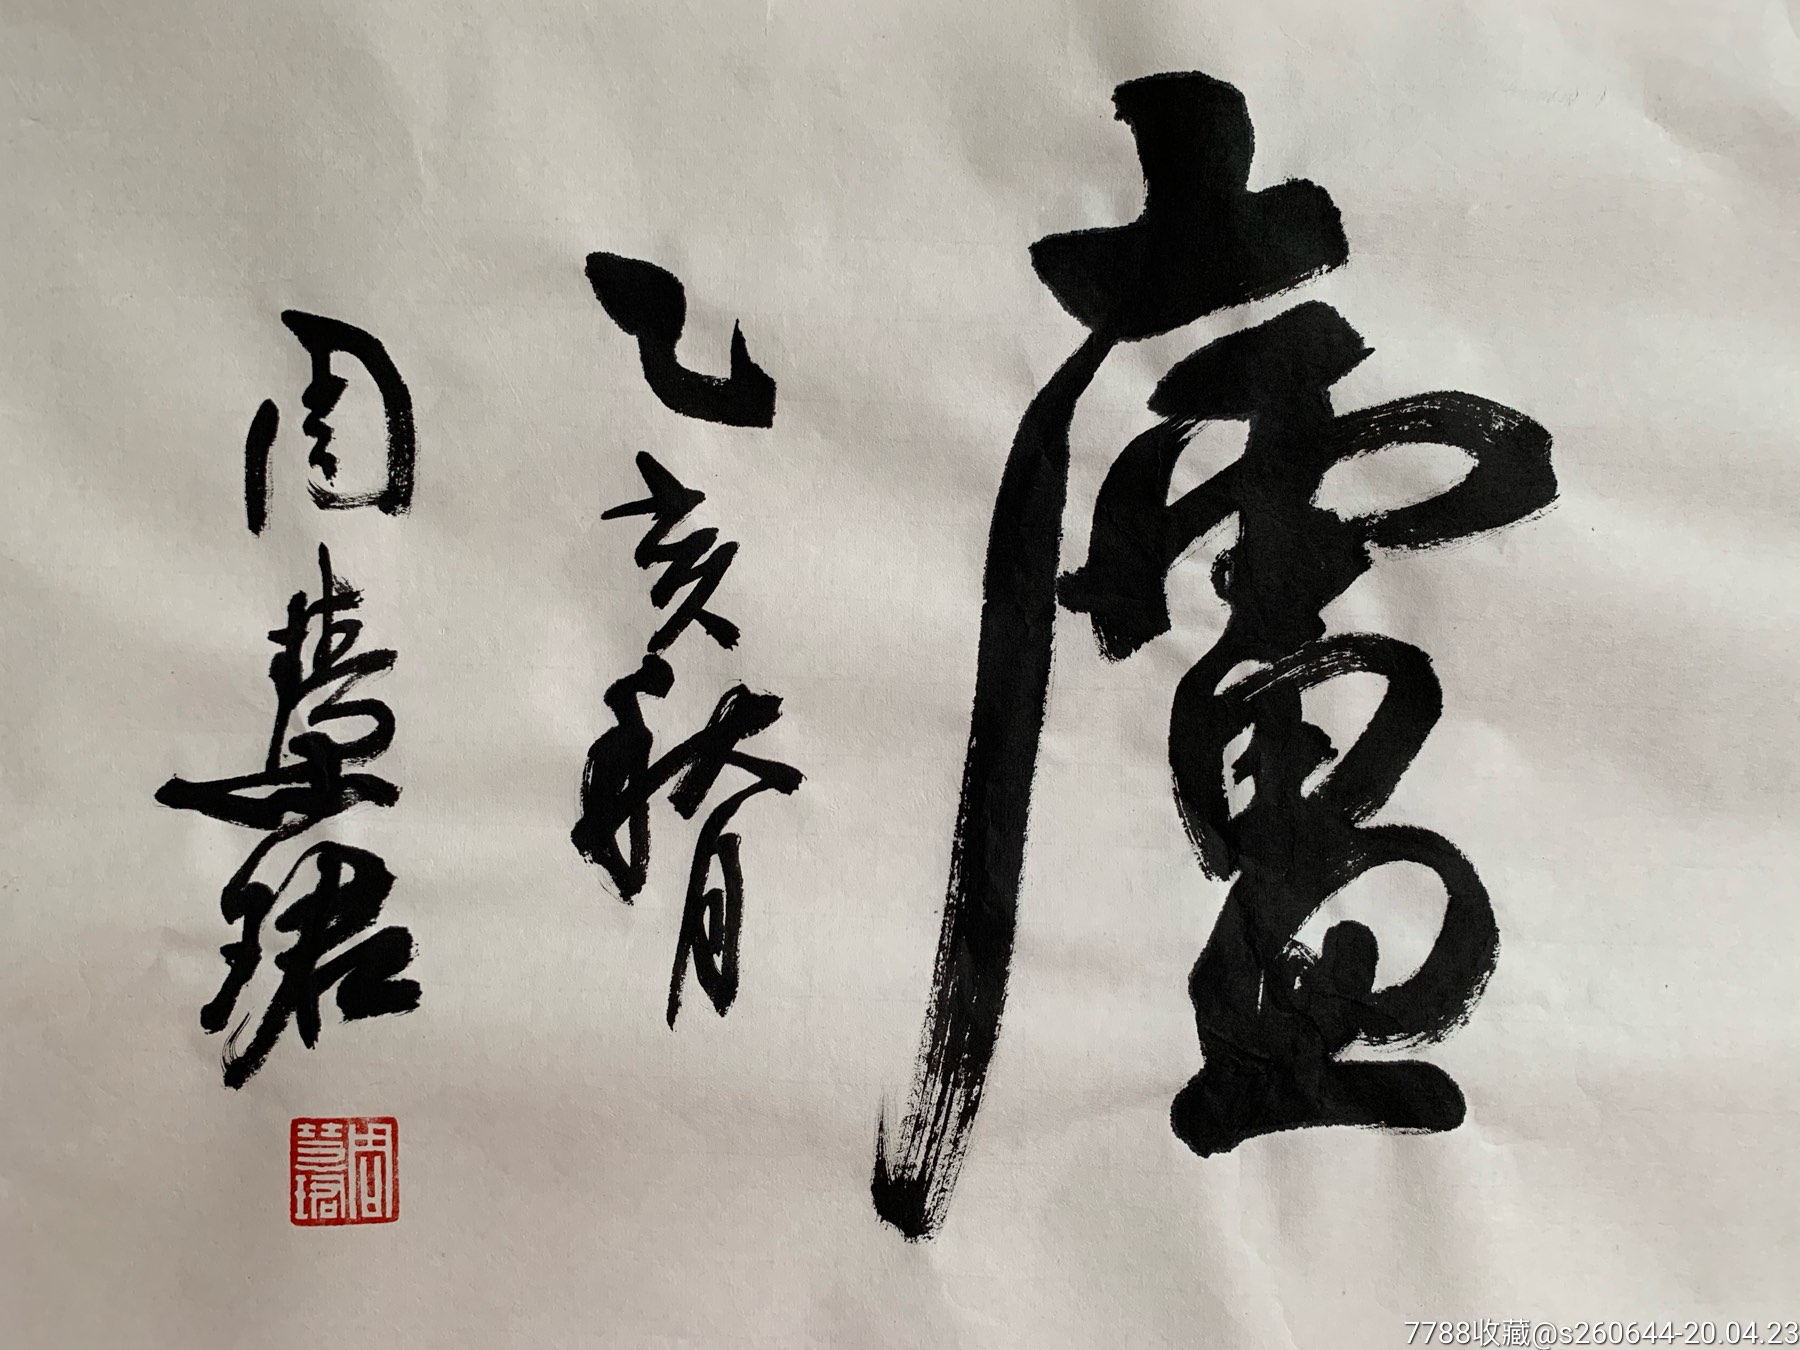 廬
乙亥秋月
周慧珺
周慧珺
7788收藏@s260644-20.04.23